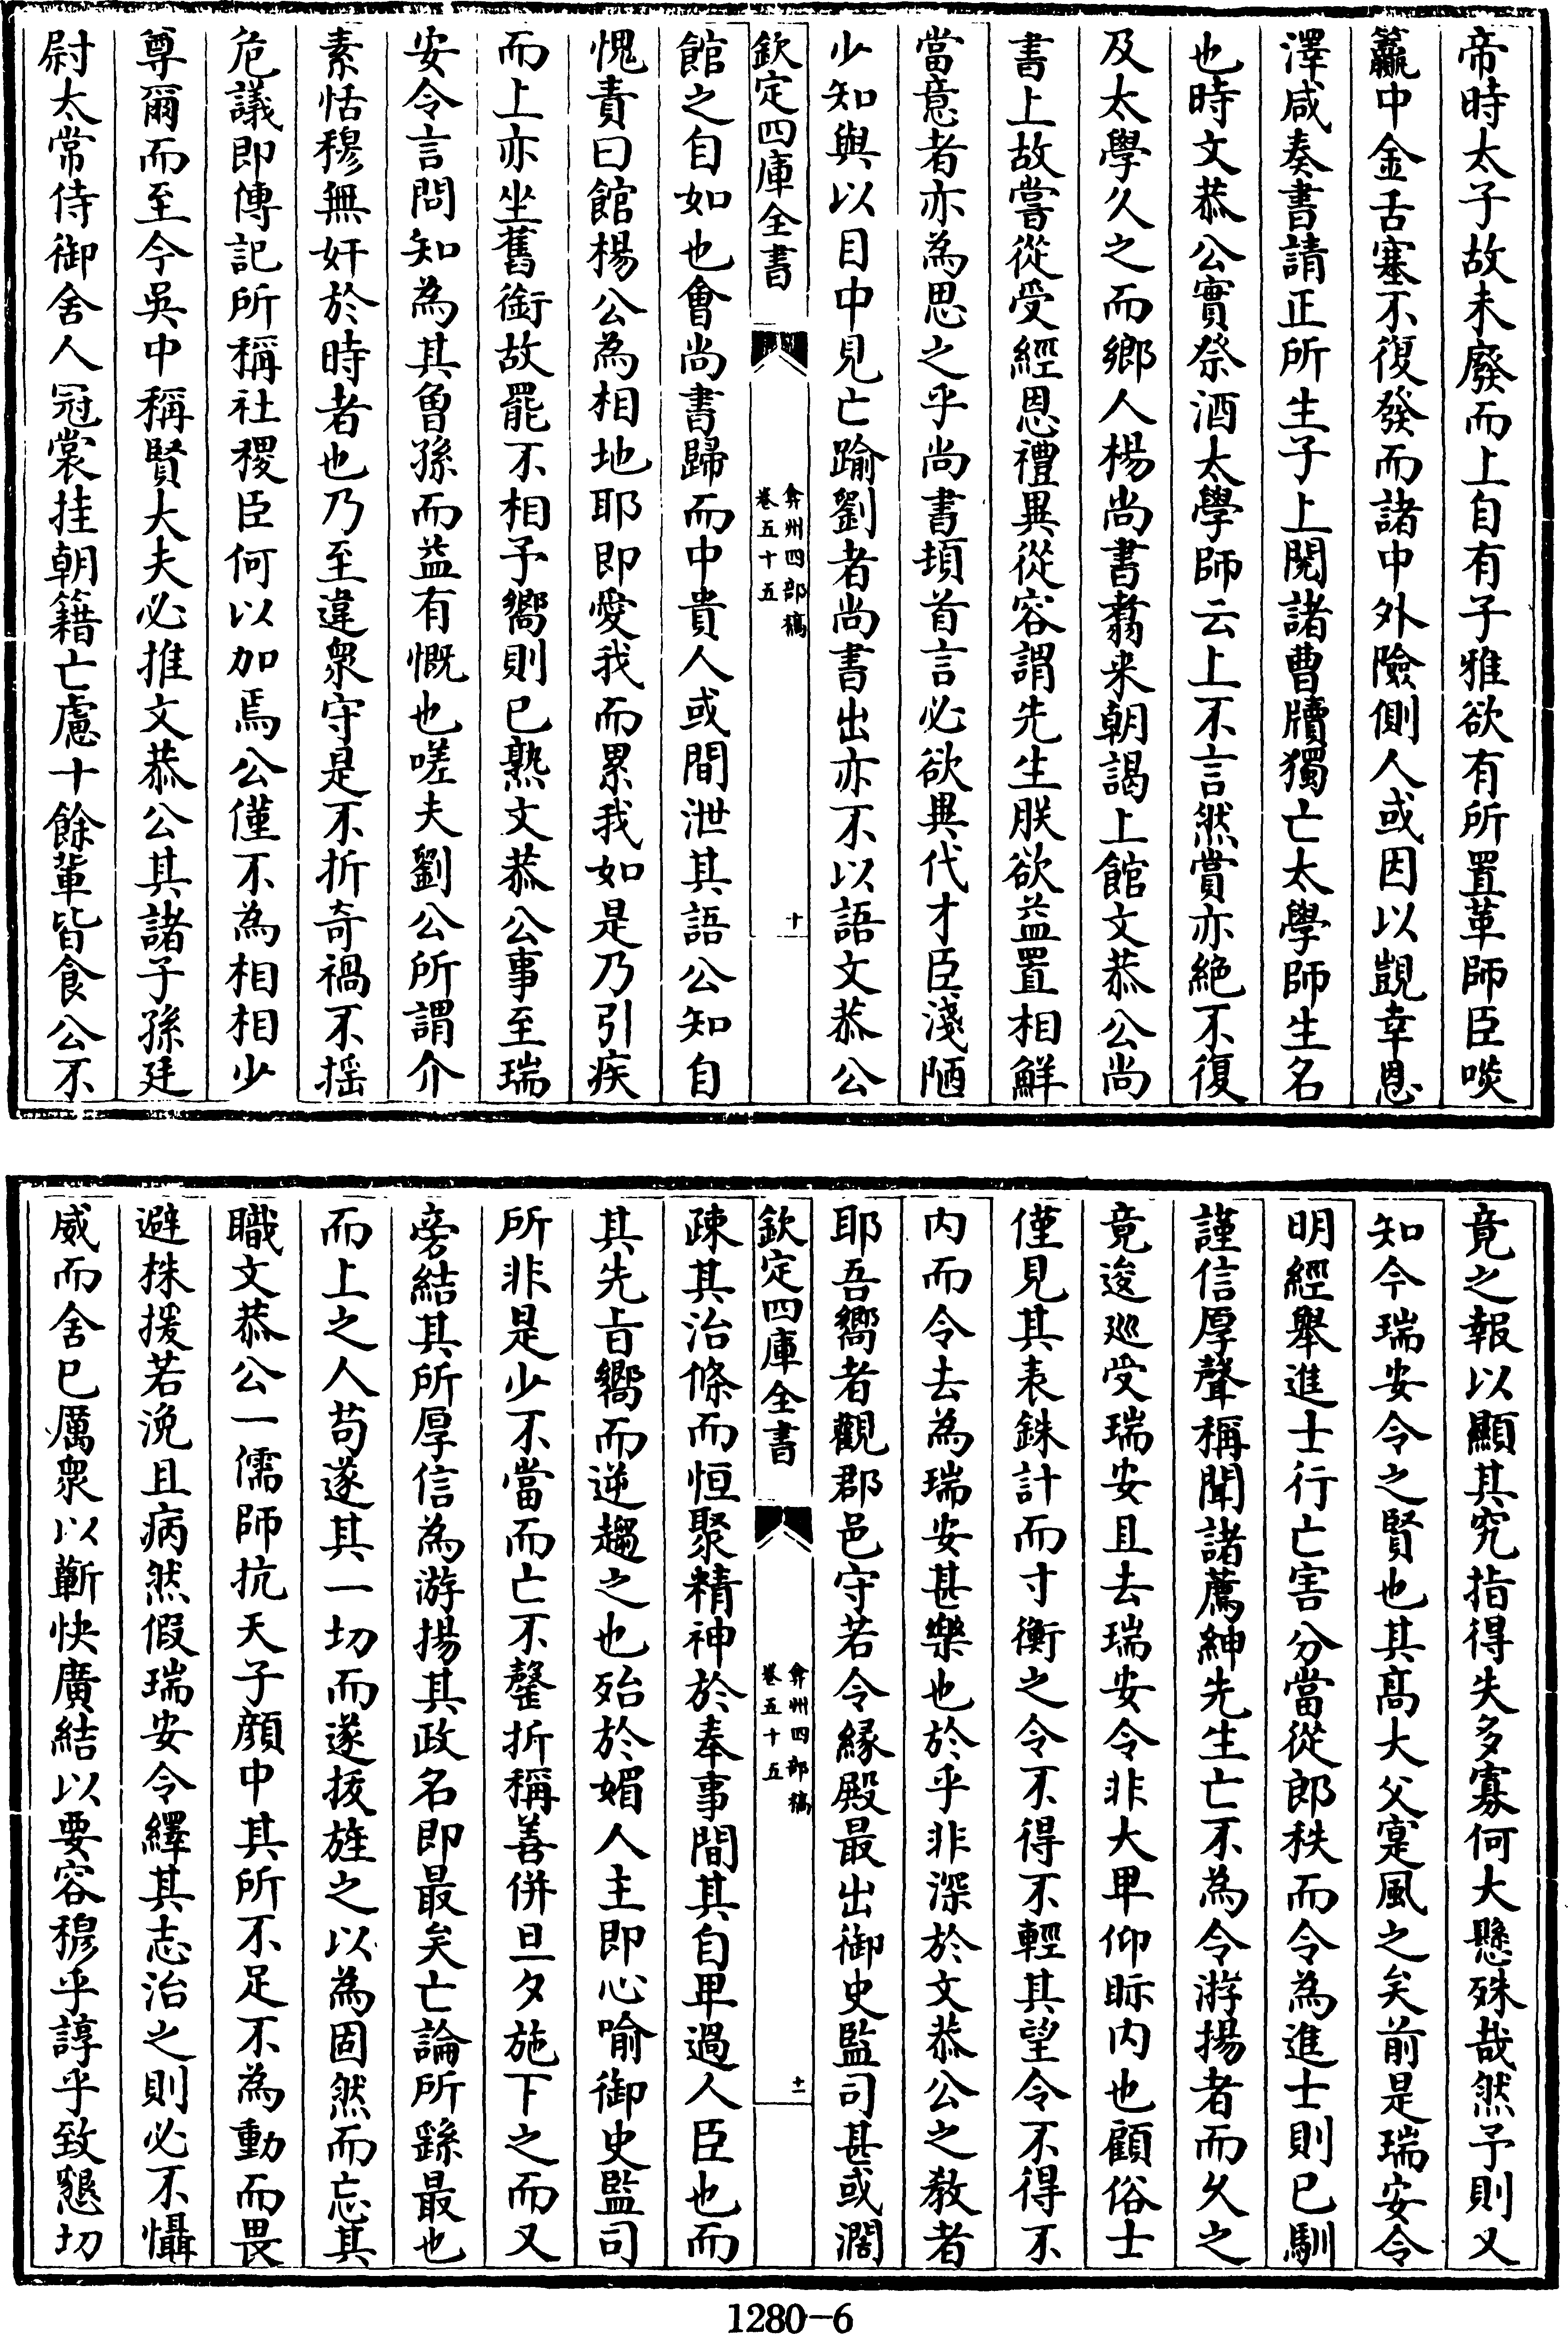 帝時太子故未廢而上自有子雅欲有所置革師臣啖
籯中金舌塞不復發而諸中外險側人或因以覬幸恩
澤咸奏書請正所生子上閱諸曹牘獨亡太學師生名
也時文恭公實祭酒太學師云上不言然賞亦絶不復
及太學久之而鄉人楊尚書翥来朝謁上館文恭公尚
書上故嘗從受經恩禮異從容謂先生朕欲益置相鮮
當意者亦為思之乎尚書頓首言必欲異代才臣淺陋
少知與以目中見亡踰劉者尚書出亦不以語文恭公
欽定四庫全書
弇州四部稿
卷五十五
十
館之自如也會尚書歸而中貴人或間泄其語公知自
愧責曰館楊公為相地耶即愛我而累我如是乃引疾
而上亦坐舊銜故罷不相予嚮則已熟文恭公事至瑞
安令言問知為其曾孫而益有慨也嗟夫劉公所謂介
素恬穆無奸於時者也乃至違衆守是不折奇禍不揺
危議即傳記所稱社稷臣何以加焉公僅不為相相少
尊爾而至今吳中稱賢大夫必推文恭公其諸子孫廷
尉太常侍御舍人冠裳挂朝籍亡慮十餘輩皆食公不
竟之報以顯其究指得失多寡何大懸殊哉然予則又
知今瑞安令之賢也其髙大父寔風之矣前是瑞安令
明經舉進士行亡害分當從郎秩而令為進士則已馴
謹信厚聲稱聞諸薦紳先生亡不為令游揚者而乆之
竟逡廵受瑞安且去瑞安令非大卑仰眎内也顧俗士
僅見其表銖計而寸衡之令不得不輕其望令不得不
内而令去為瑞安甚樂也於乎非深於文恭公之教者
耶吾嚮者觀郡邑守若令縁殿最出御史監司甚或濶
欽定四庫全書
弇州四部稿
卷五十五
十一
疎其治條而恒聚精神於奉事間其自卑過人臣也而
其先㫖嚮而逆趨之也殆於媚人主即心喻御史監司
所非是少不當而亡不罄折稱善併旦夕施下之而又
旁結其所厚信為游揚其政名即最矣亡論所繇最也
而上之人苟遂其一切而遂拔旌之以為固然而忘其
職文恭公一儒師抗天子顔中其所不足不為動而畏
避㧣援若浼且病然假瑞安令繹其志治之則必不懾
威而舍已厲衆以蘄快廣結以要容穆乎諄乎致懇切
1280-6